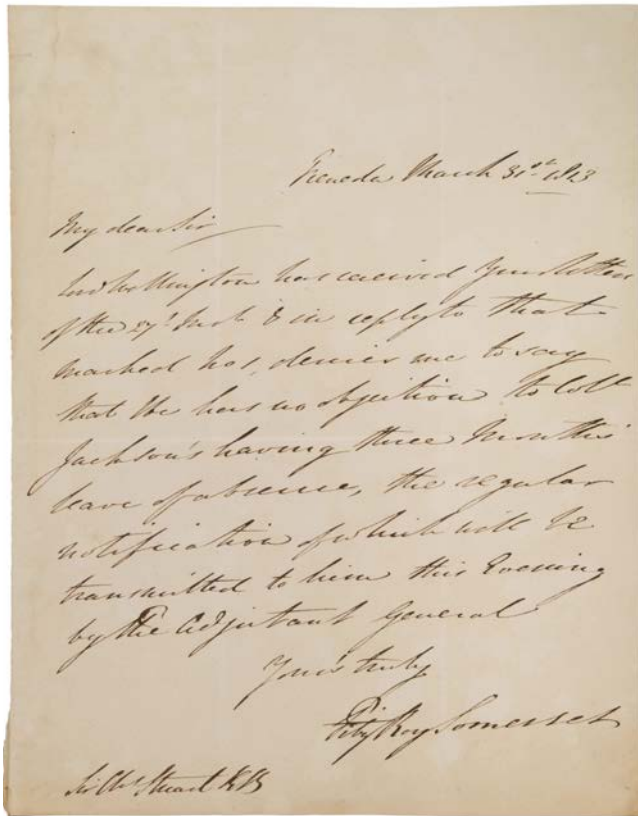 Freneda March 31st 1813
My dear Sir
Lord Wellington has received your letters
of the 27th Inst & in reply to that
marked has desired me to say
that he has no objection to Coll
Jackson's having three Months
leave of absence, the regular
notification of which will be
transmitted to him this Evening
by the Adjutant General
Yours truly
FitzRoy Somerset
Sir Chs Stuart KB